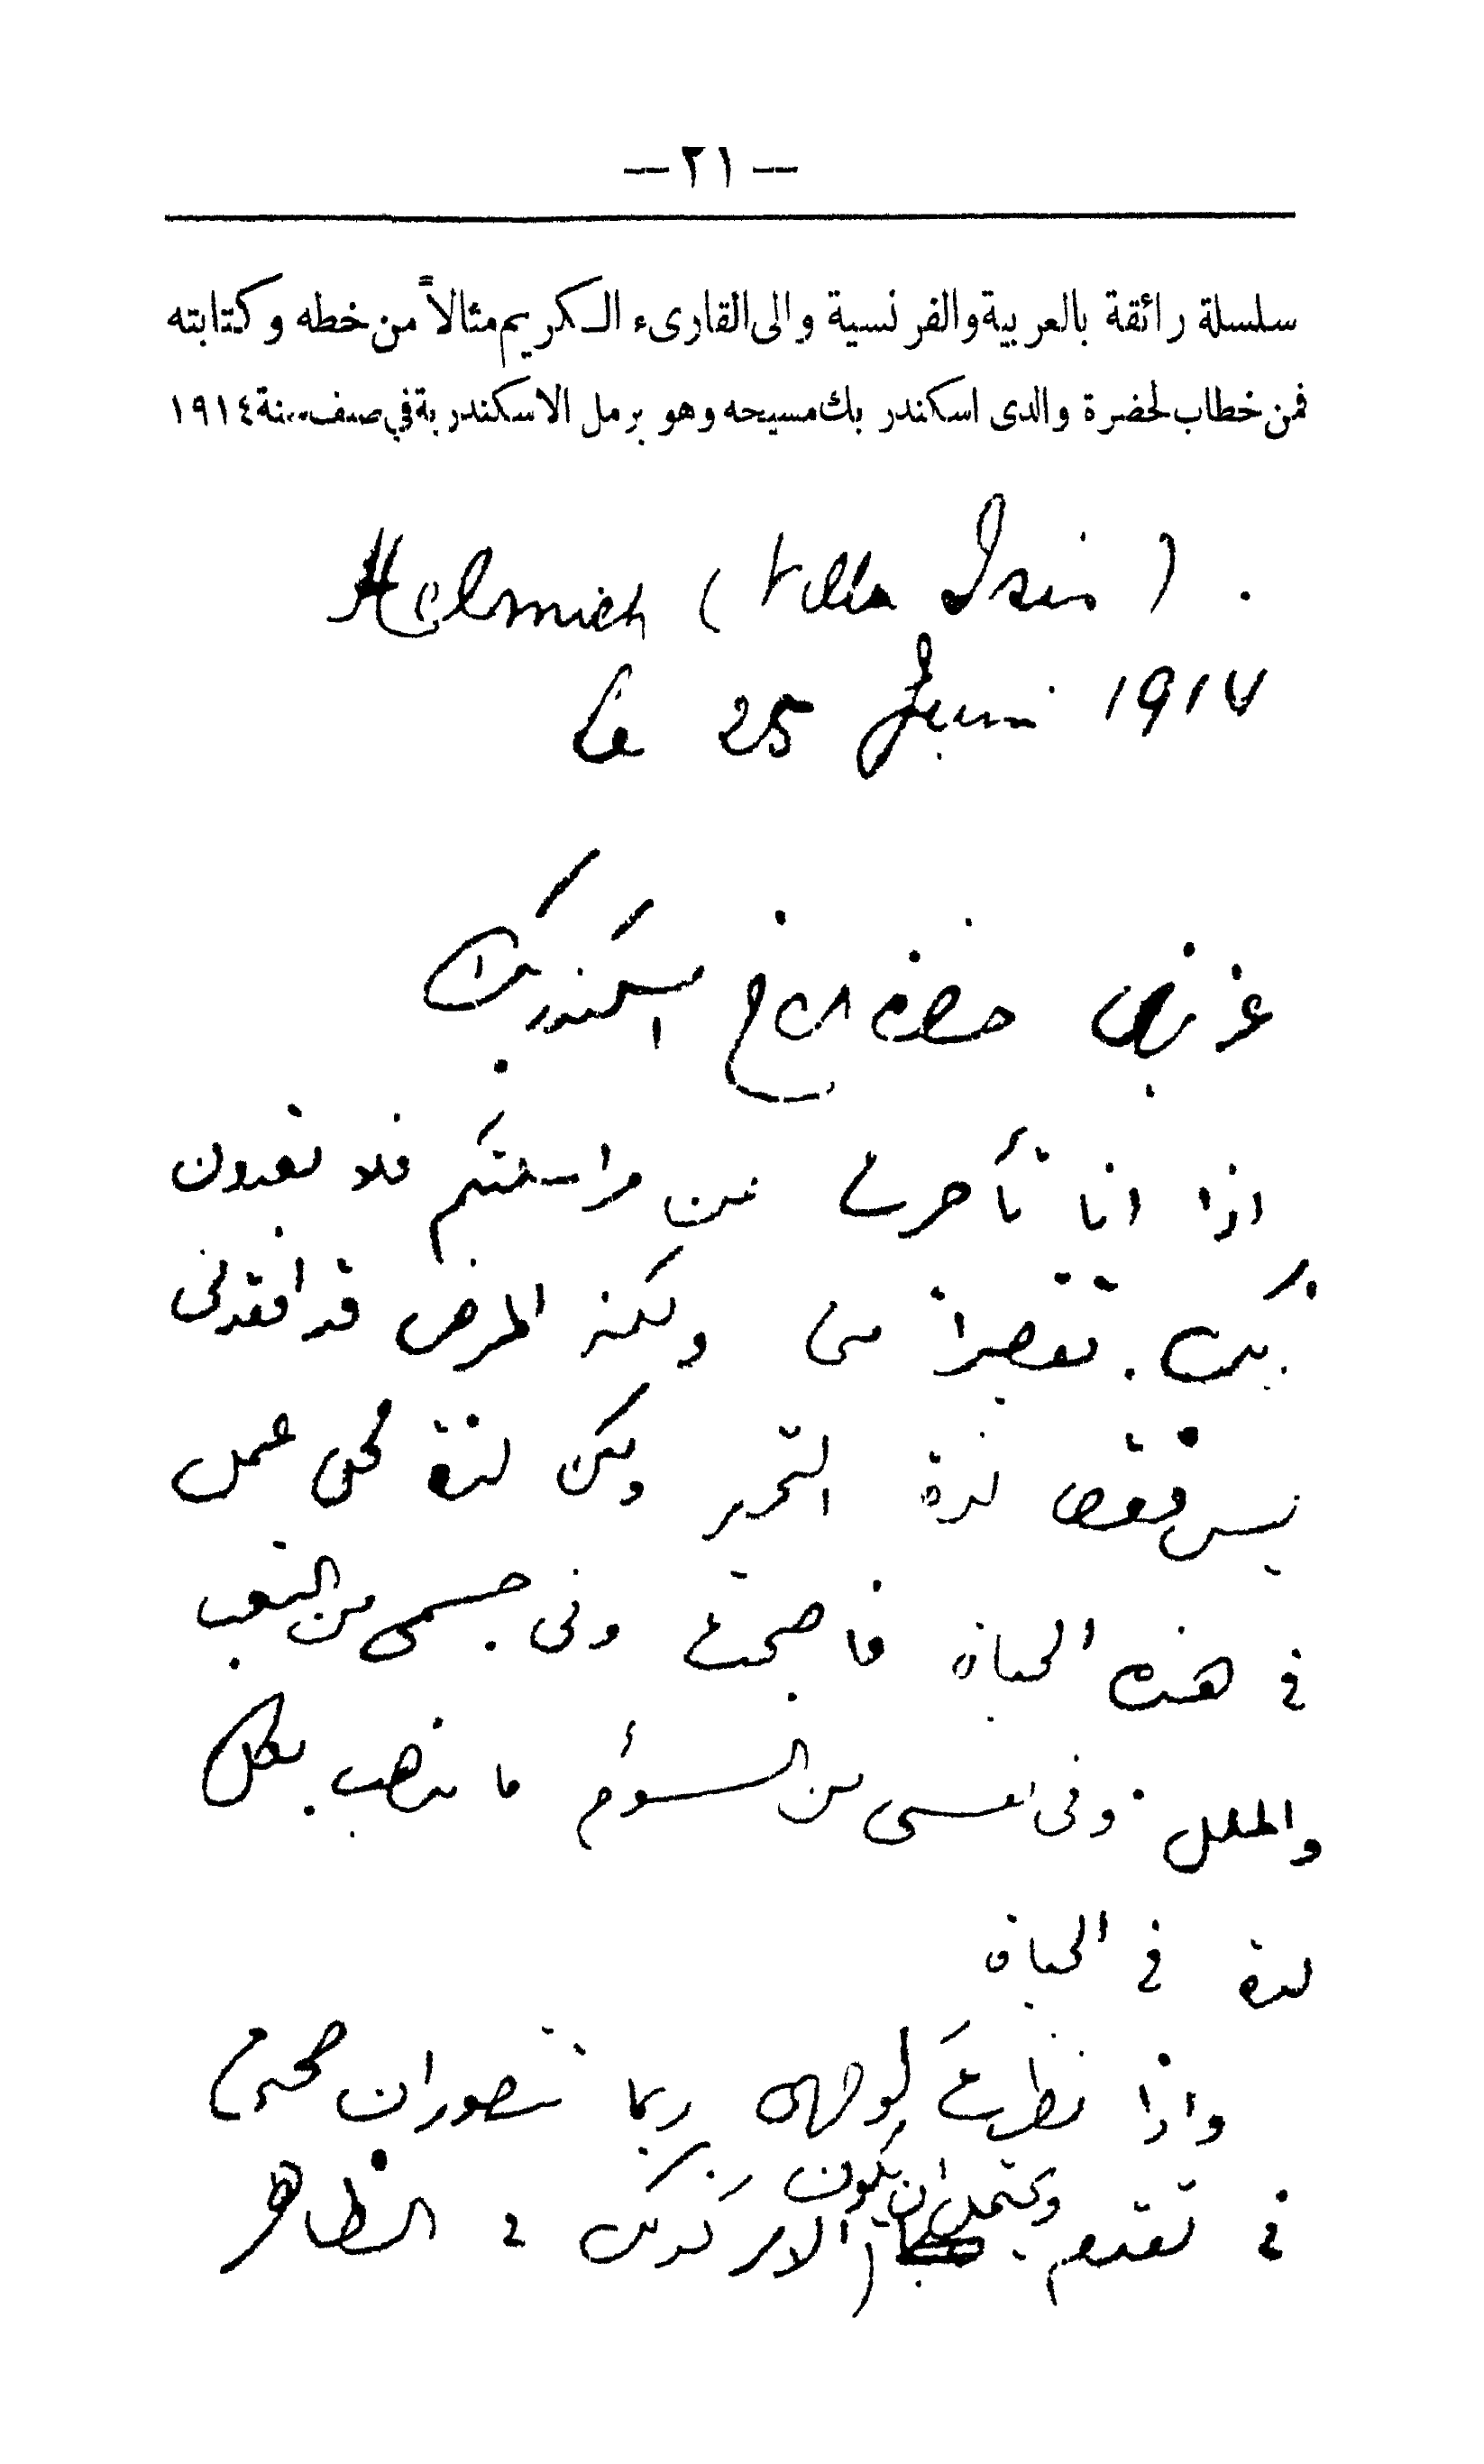 — ٢١ —
سلسلة رائقة بالعربية والفرنسية والى القارىء الكريم مثالاً من خطه وكتابته
فمن خطاب لحضرة والدى اسكندر بك مسيحه وهو برمل الاسكندرية في صيف سنة ١٩١٤
Helmieh (Villa Isis).
le 25 Juin 1914
عزيزى حضرة الاخ اسكندر بك
اذا انا تأخرت عن مراسلتكم فلا تعدون
ذلك تقصيراً منى ولكن المرض قد افقدنى
ليس فقط لذة التحرير ولكن لذة كل عمل
فى هذه الحياة فاصبحت وفى جسمى من التعب
والملل وفى نفسى من السؤم ما يذهب بكل
لذة فى الحياة
واذا نظرت لوجهى ربما تتصور ان صحتى
فى تقدم ويحتمل ان يكون الامر كذلك فى الظاهر